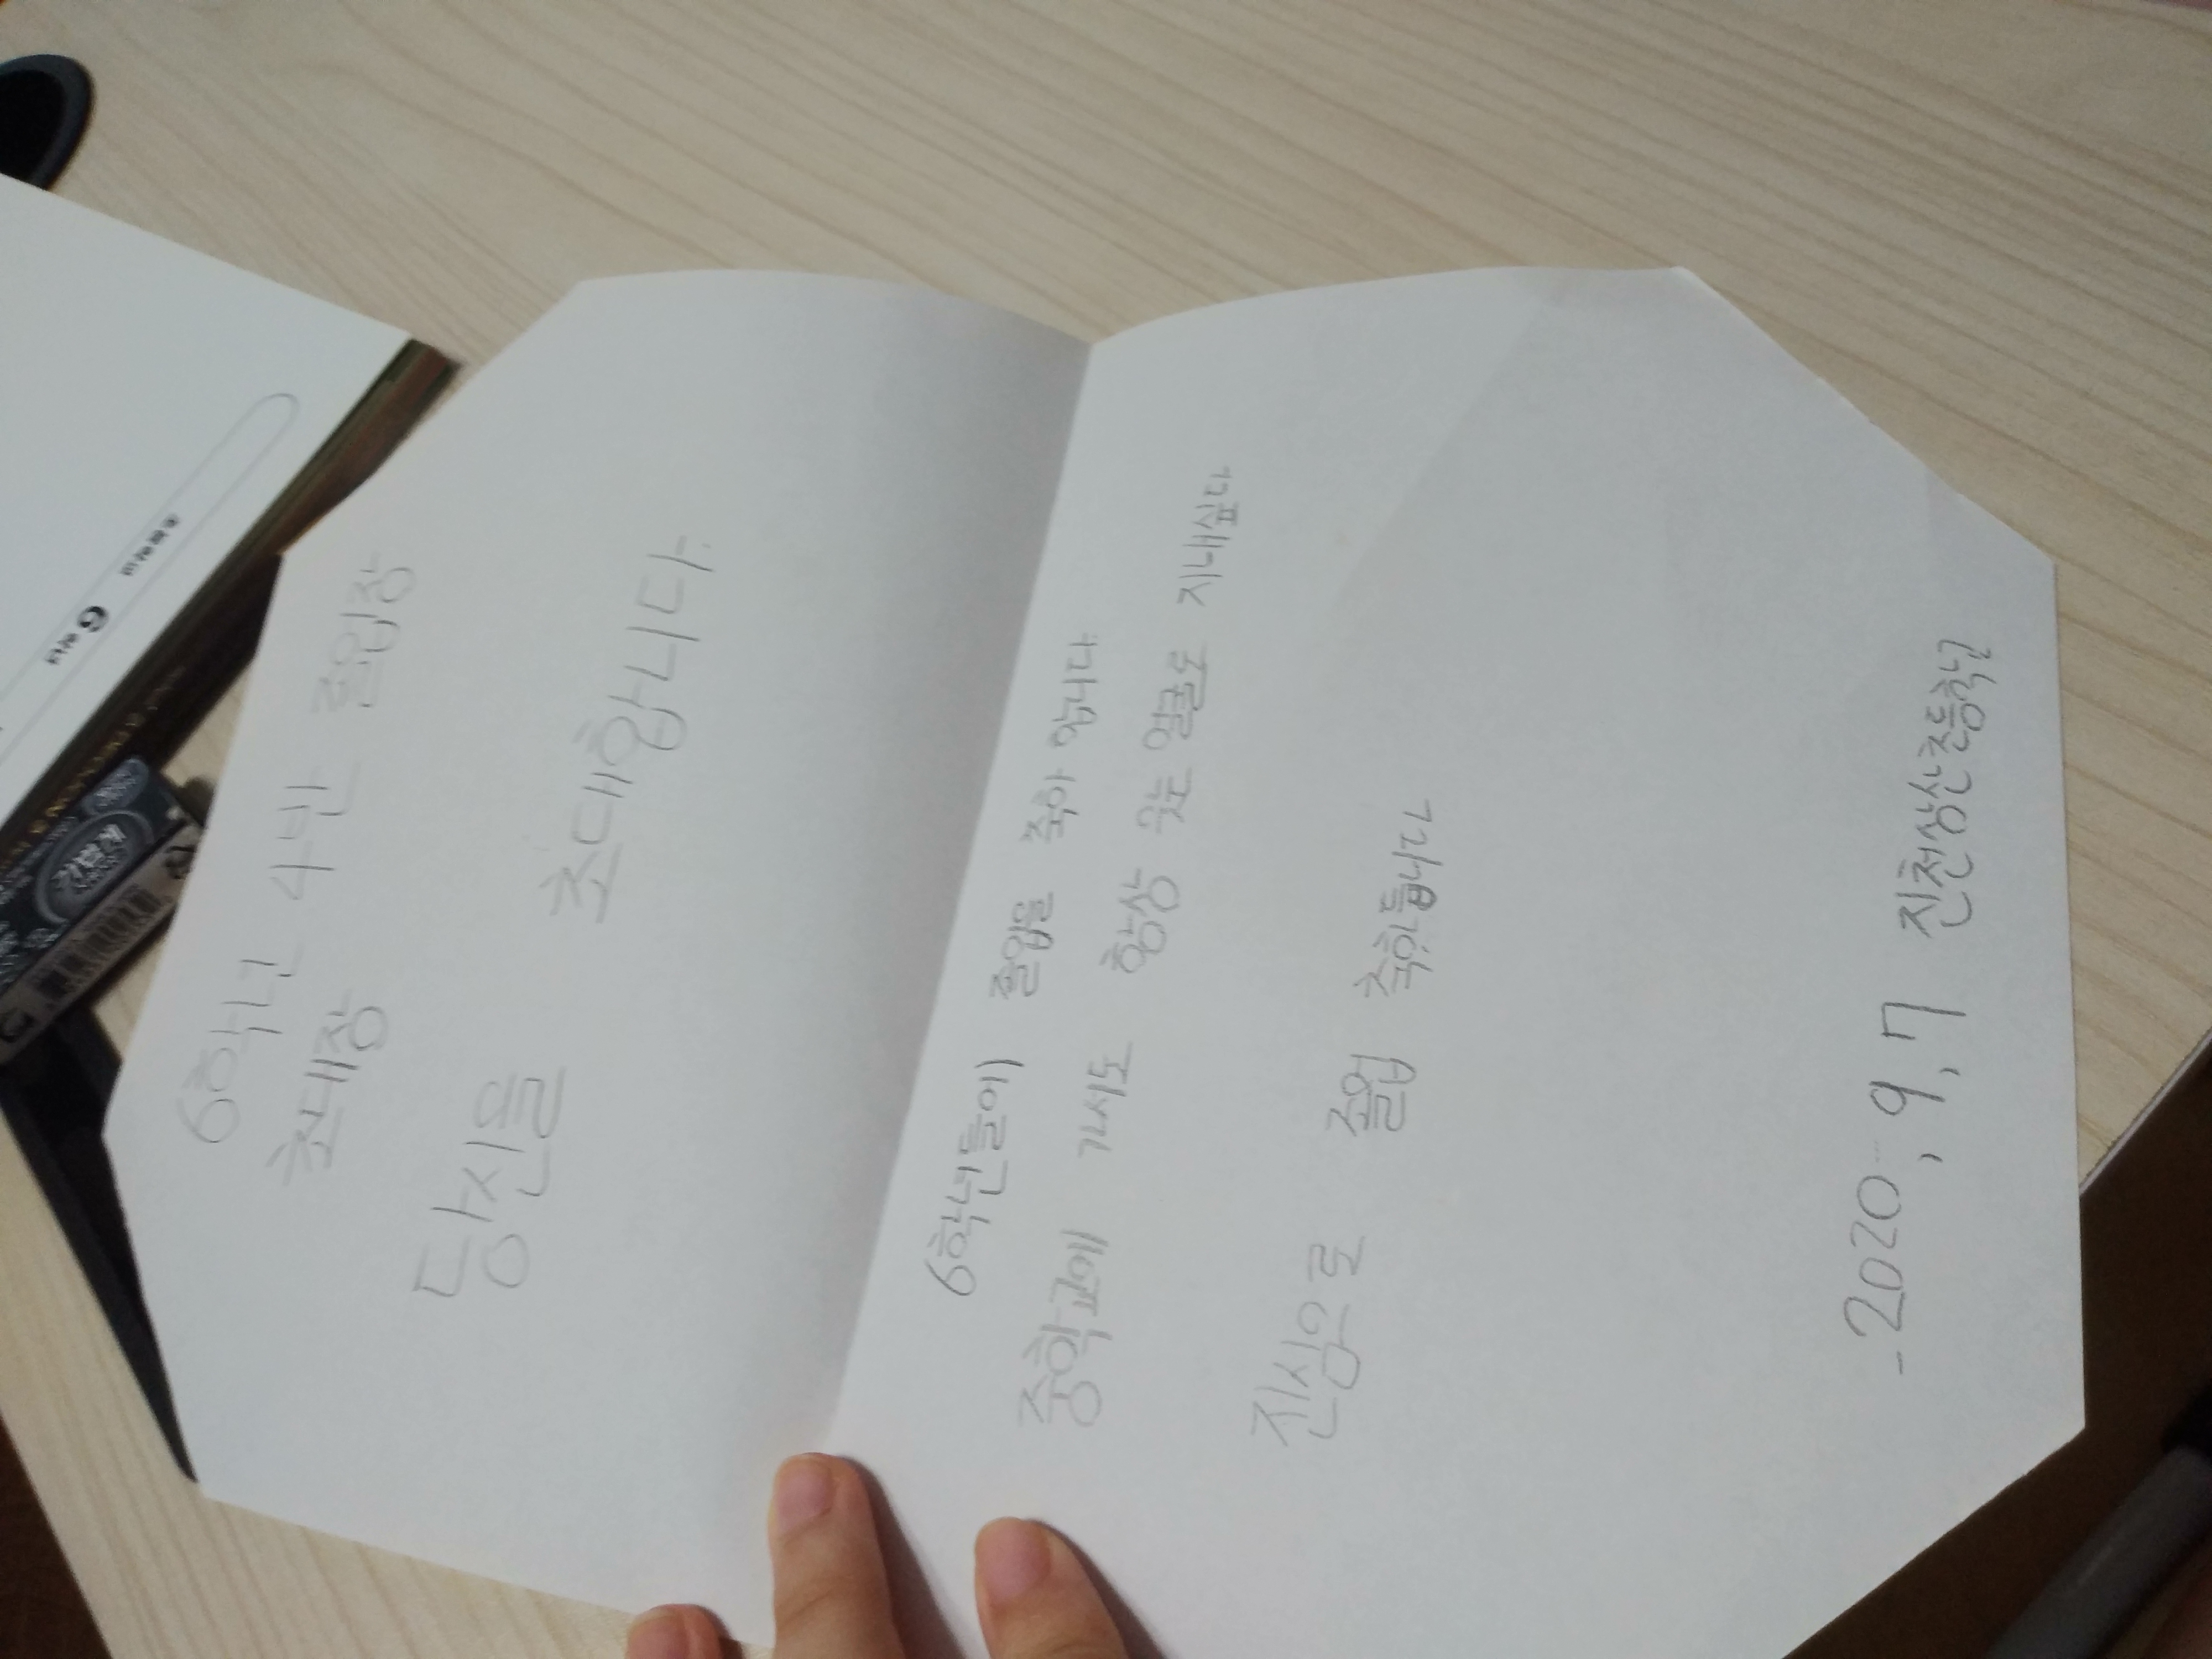 6학년 4반 졸업장
초대장
당신을 초대합니다.
6학년들이 졸업을 축하 합니다
중학교에 가서도 항상 웃는 얼굴로 지내십다
진심으로 졸업 축하합니다
- 2020, 9, 7 진천상산초등학교
6